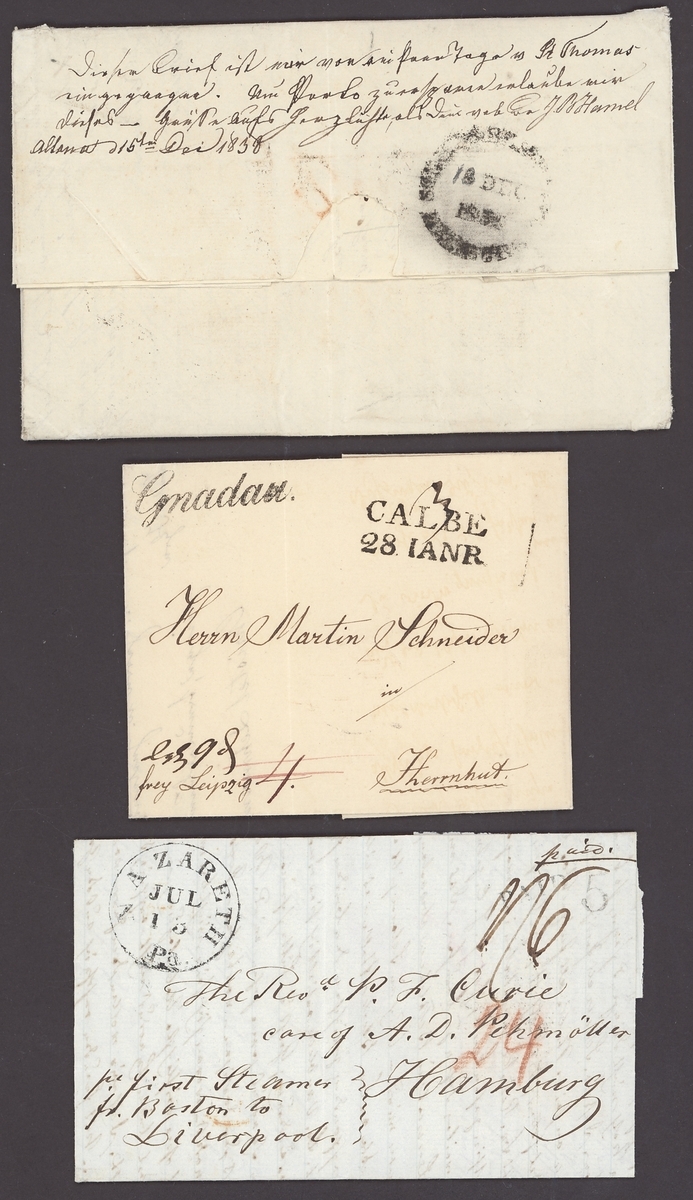 Dieser Brief ist mir vor einpaar Tage v St Thomas
eingegangen. Um Porto zu ersparen erlaube mir
dieses — Grüße aufs herzlichste, als Dein geb Br J B Hamel
Altona d 15ten Dec 1838.
18 DEC
Gnadau.
3
CALBE
28 IANR
Herrn Martin Schneider
in
frey Leipzig 4.
Herrnhut.
paid.
NAZARETH
JUL
13
Pa.
5
The Revd P. F. Curie
care of A. D. Pehmöller
24
pr first Steamer Hamburg
fr. Boston to
Liverpool.